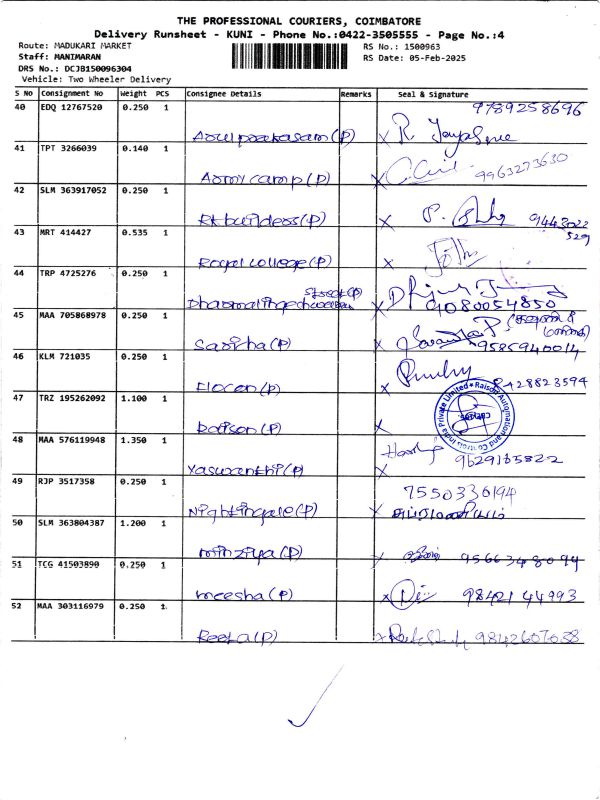 THE PROFESSIONAL COURIERS, COIMBATORE
Delivery Runsheet - KUNI - Phone No.:0422-3505555 - Page No.:4
Route: MADUKARI MARKET
RS No.: 1500963
Staff: MANIMARAN
RS Date: 05-Feb-2025
DRS No.: DCJB150096304
Vehicle: Two Wheeler Delivery
S NO Consignment No Weight PCS Consignee Details Remarks Seal & Signature
40 EDQ 12767520 0.250 1 9789258696
Arulprakasam (P) X
41 TPT 3266039 0.140 1
Army camp (P) X 9963273630
42 SLM 363917052 0.250 1
Rk builders (P) X 9443022
529
43 MRT 414427 0.535 1
Royal college (P)
44 TRP 4725276 0.250 1
Street (P)
X 9080054850
45 MAA 705868978 0.250 1
Sarika (P) X 9585940014
46 KLM 721035 0.250 1
(P) X
47 TRZ 195262092 1.100 1
(P) X
Raison Automation and Controls India Private Limited
48 MAA 576119948 1.350 1
9629165822
Yaswanthi (P) X
49 RJP 3517358 0.250 1 7550330194
Nightingale (P) X
50 SLM 363804387 1.200 1
minziya (P) X 9566348094
51 TCG 41503890 0.250 1
meesha (P) X 9842144993
52 MAA 303116979 0.250 1
Reeta (P) X 9842607038